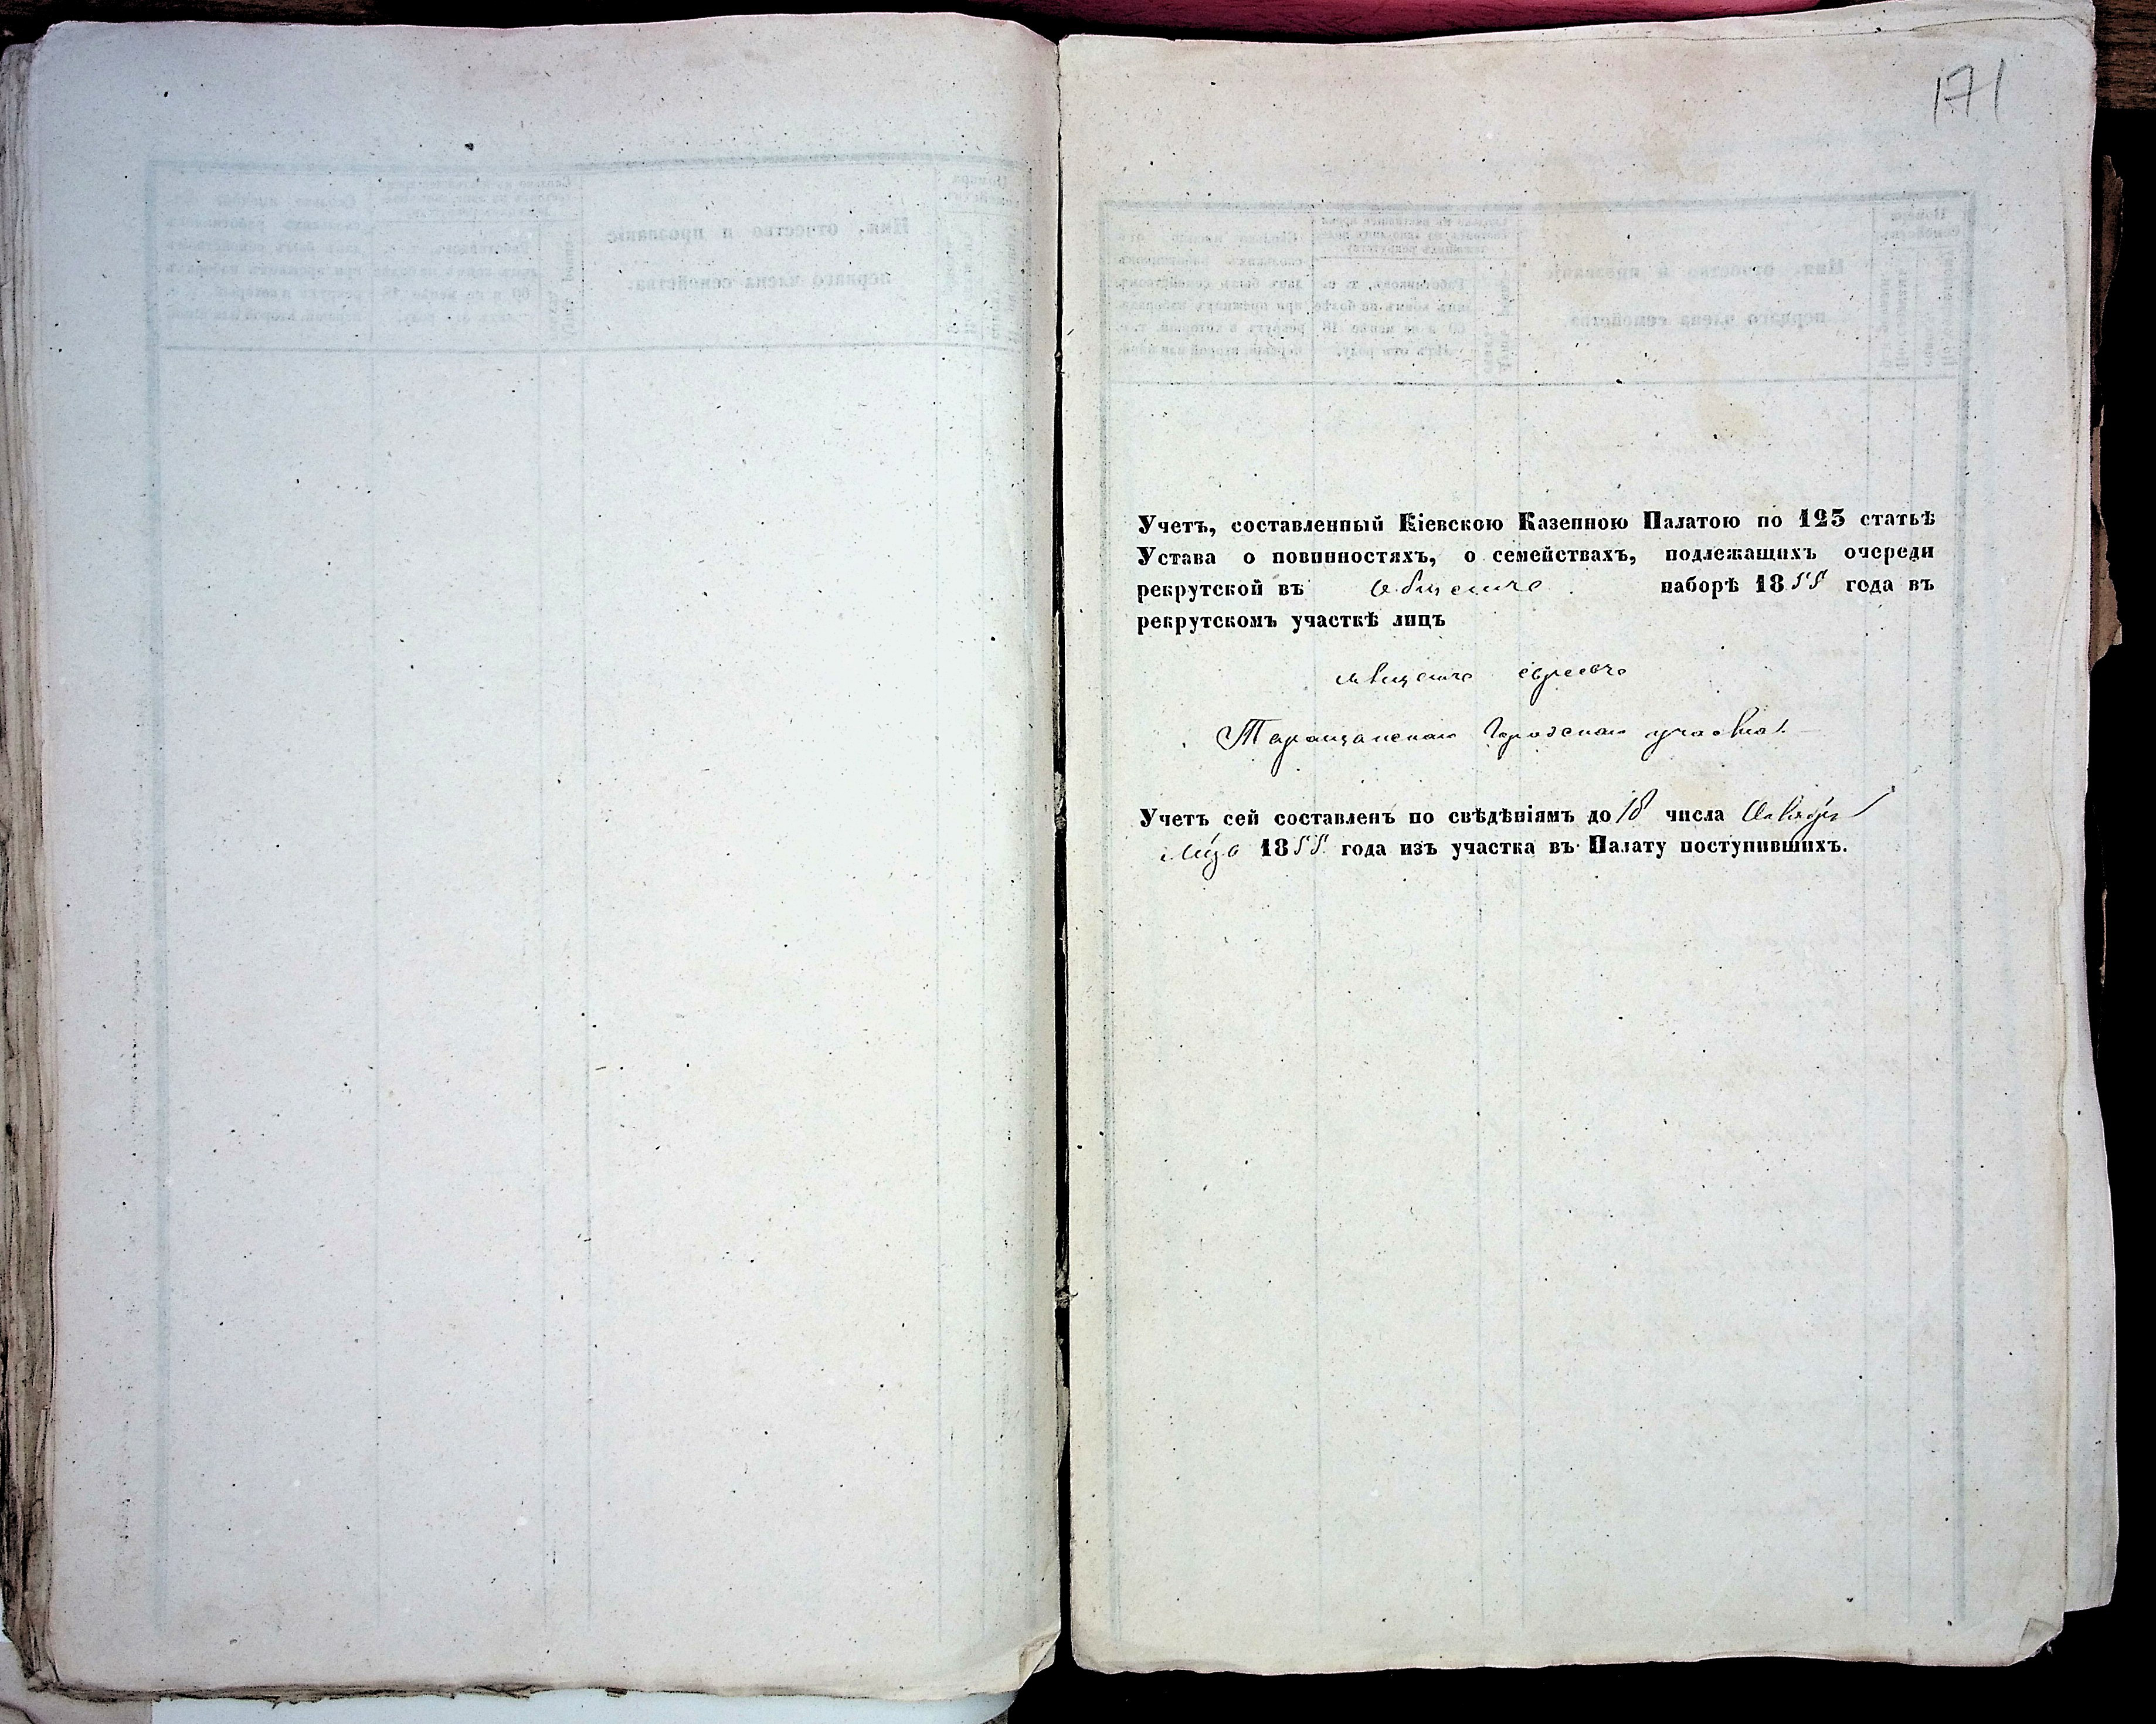 171
Учетъ, составленный Кіевскою Казенною Палатою по 123 статьѣ
Устава о повинностяхъ, о семействахъ, подлежащихъ очереди
рекрутской въ общемъ наборѣ 1855 года въ
рекрутскомъ участкѣ лицъ
мѣщанъ евреевъ
Таращанскаго Городскаго участка.
Учетъ сей составленъ по свѣдѣніямъ до 18 числа Октября
1855 года изъ участка въ Палату поступившихъ.